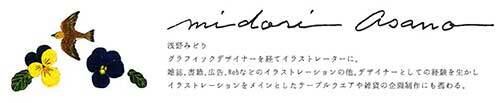 midori asano
浅野みどり
グラフィックデザイナーを経てイラストレーターに。
雑誌、書籍、広告、Webなどのイラストレーションの他、デザイナーとしての経験を生かし
イラストレーションをメインとしたテーブルウエアや雑貨の企画制作にも携わる。